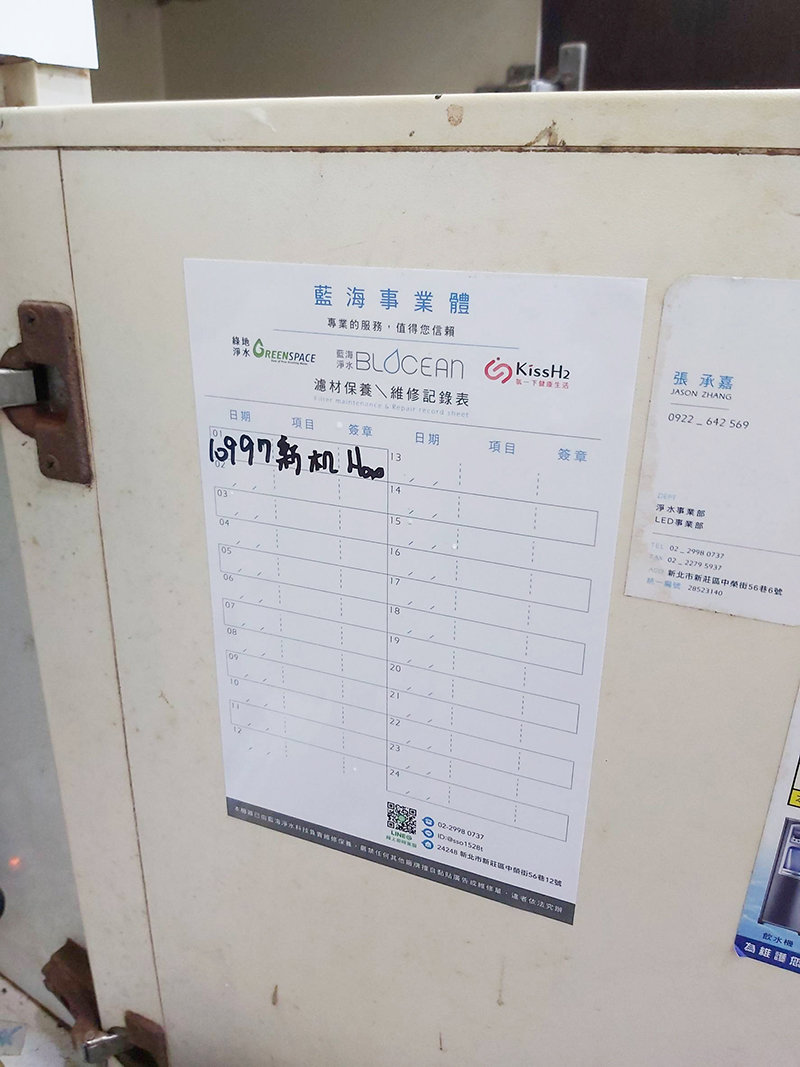 藍海事業體
專業的服務，值得您信賴
綠地淨水 GREENSPACE 藍海淨水 BLOCEAN KissH2 氫一下健康生活
濾材保養＼維修記錄表
Filter maintenance & Repair record sheet
日期 項目 簽章 日期 項目 簽章
01 10997 新机 13
02 14
03 15
04 16
05 17
06 18
07 19
08 20
09 21
10 22
11 23
12 24
LINE@
線上即時客服
02-2998 0737
ID:@sso1528t
24248 新北市新莊區中榮街56巷12號
本機器已由藍海淨水科技負責維修保養，嚴禁任何其他廠牌擅自黏貼廣告或維修單，違者依法究辦
張承嘉
JASON ZHANG
0922 _ 642 569
DEPT
淨水事業部
LED事業部
TEL 02 _ 2998 0737
FAX 02 _ 2279 5937
ADD 新北市新莊區中榮街56巷6號
統一編號 28523140
飲水機
為維護您